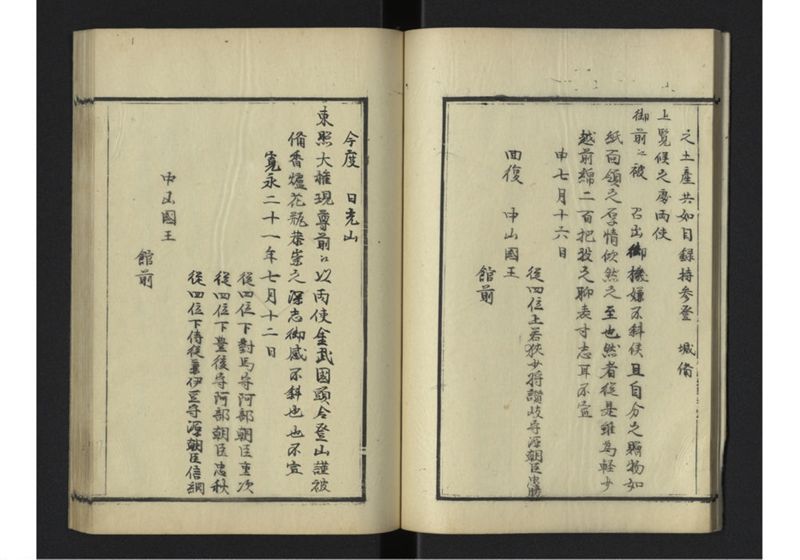 之土産共如目録持参登　城備
上覧候之処両使
御前江被　召出御機嫌不斜候且自分之贈物如
紙面領之厚情欣然之至也然者従是雖為軽少
越前綿二百把投之聊表寸志耳不宣
申七月十六日
回復　中山國王
従四位上若狭少将讃岐守源朝臣忠勝
館前
今度　日光山
東照大権現尊前江以両使金武國頭令登山謹被
備香爐花瓶恭崇之深志御感不斜也不宣
寛永二十一年七月十二日
従四位下對馬守阿部朝臣重次
従四位下豊後守阿部朝臣忠秋
従四位下侍従兼伊豆守源朝臣信綱
中山國王
館前